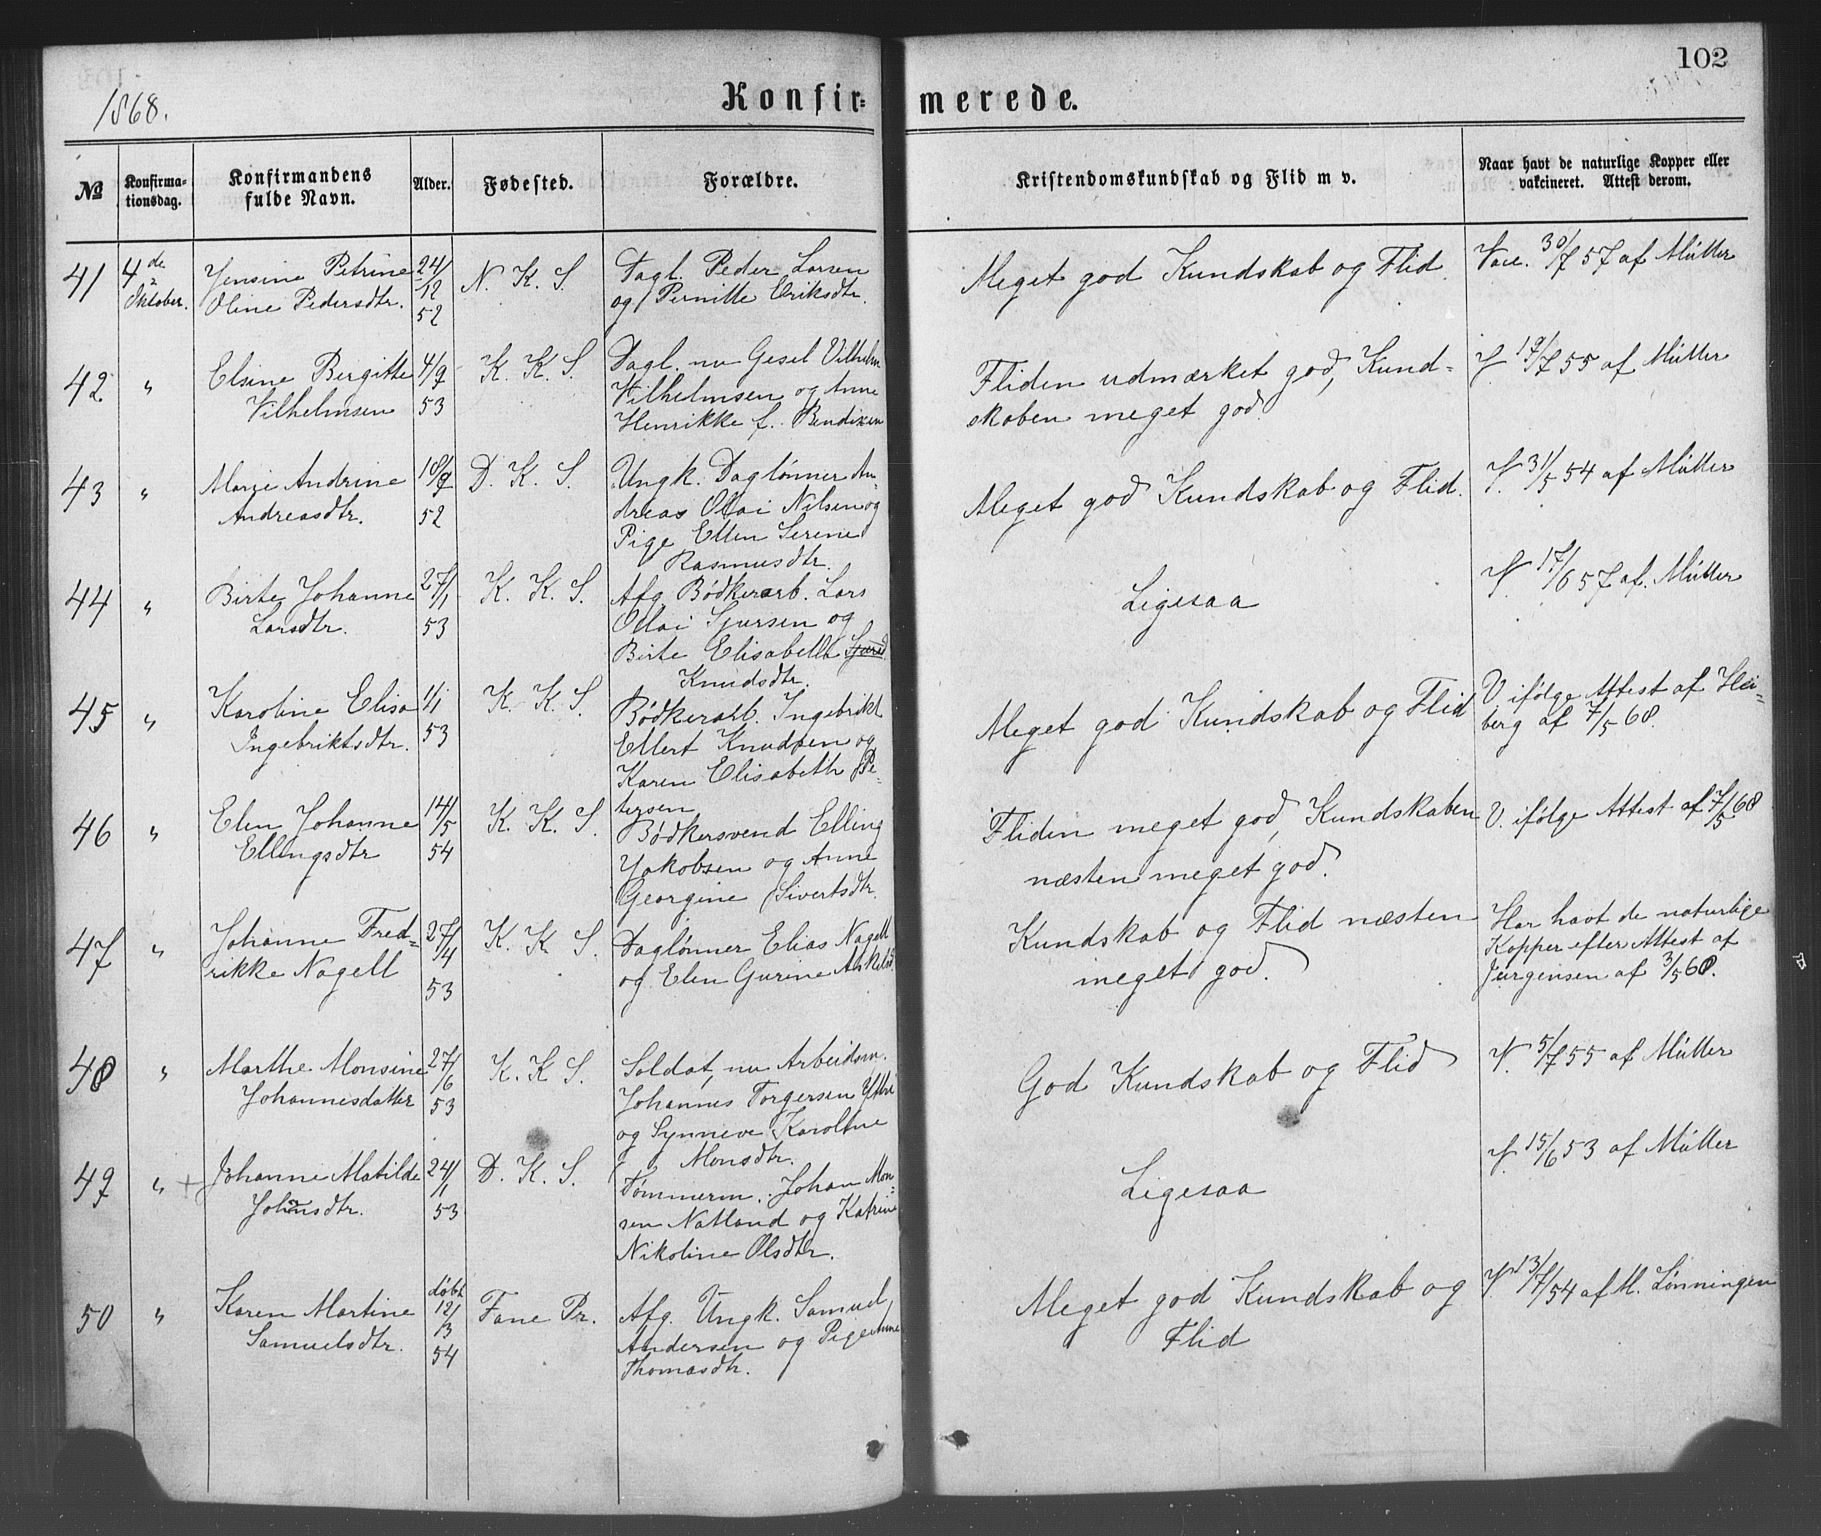 102
1868.
Konfir=
merede.
№
Konfirma-
tionsdag.
Konfirmandens
fulde Navn.
Alder.
Fødested.
Forældre.
Kristendomskundskab og Flid m v.
Naar havt de naturlige Kopper eller
vakcineret. Attest derom.
41
4de
Oktober.
Jensine Petrine
Oline Pedersdtr.
24/12
52
N. K. S.
Dagl. Peder Larsen
og Pernille Eriksdtr.
Meget god Kundskab og Flid.
Vacc. 30/7 57 af Müller
42
"
Elsine Bergitte
Vilhelmsen
4/9
53
K. K. S.
Dagl. nu Gesel Vilhelm
Vilhelmsen og Anne
Henrikke f. Bendixen
Fliden udmærket god, Kund=
skaben meget god
V. 19/7 55 af Müller
43
"
Marie Andrine
Andreasdtr.
18/9
52
D. K. S.
Ungk. Daglønner An-
dreas Olai Nilsen og
Pige Ellen Serine
Rasmusdtr.
Meget god Kundskab og Flid.
V. 31/5 54 af Müller
44
"
Birte Johanne
Larsdtr.
27/1
53
K. K. S.
Afg. Bødkerarb. Lars
Olai Sjursen og
Birte Elisabeth
Knudsdtr.
Ligesaa
V. 17/6 57 af Müller
45
"
Karoline Elisa
Ingebriktsdtr.
1/1
53
K. K. S.
Bødkerarb. Ingebrikt
Ellert Knudsen og
Karen Elisabeth Pe-
tersen
Meget god Kundskab og Flid
V. ifølge Attest af Hei-
berg af 7/5 68.
46
"
Elen Johanne
Ellingsdtr
14/5
54
K. K. S.
Bødkersvend Elling
Jakobsen og Anne
Georgine Sivertsdtr.
Fliden meget god, Kundskaben
næsten meget god.
V. ifølge Attest af 7/5 68
47
"
Johanne Fred=
rikke Nagell
27/4
53
K. K. S.
Daglønner Elias Nagell
og Elen Gurine Askelsd
Kundskab og Flid næsten
meget god.
Har havt de naturlige
Kopper efter Attest af
Jørgensen af 3/5 68.
48
"
Marthe Monsine
Johannesdatter
27/6
53
K. K. S.
Soldat, nu Arbeidsm.
Johannes Torgersen Yttri
og Synneve Karoline
Monsdtr.
God Kundskab og Flid
V. 5/7 55 af Müller
49
"
Johanne Matilde
Johansdtr.
24/1
53
D. K. S.
Tømmerm. Johan Mon=
sen Natland og Katrine
Nikoline Olsdtr.
Ligesaa
V. 15/6 53 af Müller
50
"
Karen Martine
Samuelsdtr.
døbt
12/3
54
Fane Pr.
Afg. Ungk. Samuel
Andersen og Pige Anne
Thomasdtr.
Meget god Kundskab og
Flid
V. 13/7 54 af M. Lønningen